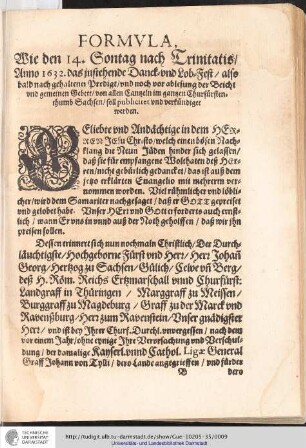 FORMVLA,
Wie den 14. Sontag nach Trinitatis/
Anno 1632. das instehende Danck- vnd Lob-Fest/ also
bald nach gehaltener Predigt/ vnd noch vor ablesung der Beicht
vnd gemeinen Gebet/ von allen Cantzeln im gantzen Churfürsten-
thumb Sachsen/ soll publiciret vnd verkündiget
werden.
GEliebte vnd Andächtige in dem HEr-
REN JEsu Christo/ welch einen bösen Nach-
klang die Neun Jüden hinder sich gelassen/
daß sie für empfangene Wolthaten deß HEr-
ren/ nicht gebürlich gedancket/ das ist auß dem
jetzo erklärten Evangelio mit mehrern ver-
nommen worden. Viel rühmlicher vnd löbli-
cher/ wird dem Samariter nachgesaget/ daß er GOTT gepreiset
vnd gelobet hab. Unser HErr vnd Gott erfordert auch ernst-
lich/ wann Er vns in vnnd auß der Noth geholffen/ daß wir jhn
preisen sollen.
Dessen erinnert sich nun nochmaln Christlich/ Der Durch-
läuchtigste/ Hochgeborne Fürst vnd Herr/ Herr Johañ
Georg/ Hertzog zu Sachsen/ Gülich/ Cleve vñ Berg/
deß H. Röm. Reichs Ertzmarschall vnnd Churfürst:
Landgraff in Thüringen/ Marggraff zu Meissen/
Burggraff zu Magdeburg/ Graff zu der Marck vnd
Ravenßburg/ Herr zum Ravenstein/ Unser gnädigster
Herr/ vnd ist bey Jhrer Churf. Durchl. vnvergessen/ nach dem
vor einem Jahr/ ohne eynige Jhre Verursachung vnd Verschul-
dung/ der damalige Kayserl. vnnd Cathol. Ligæ General
Graff Johann von Tylli/ dero Lande angegrieffen/ vnd fürder
B dero
TECHNISCHE
UNIVERSITÄT
DARMSTADT
http://tudigit.ulb.tu-darmstadt.de/show/Gue-10205-35/0009
Universitäts- und Landesbibliothek Darmstadt